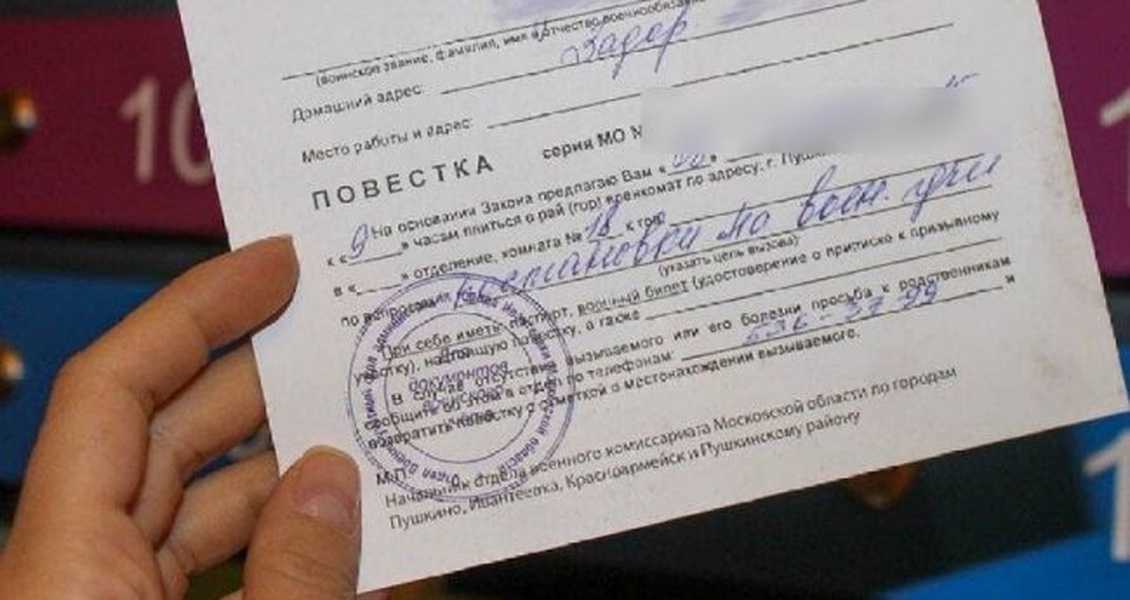 (воинское звание, фамилия, имя и отчество военнообязанного
Домашний адрес:
Место работы и адрес:
ПОВЕСТКА серия МО №
На основании Закона предлагаю Вам «
к « 9 » часам явиться в рай (гор) военкомат по адресу: г. Пушк
в « » отделение, комната № 18 к тов
по вопросу постановки на воен. учёт
(указать цель вызова)
При себе иметь: паспорт, военный билет (удостоверение о приписке к призывному
участку), настоящую повестку, а также
В случае отсутствия вызываемого или его болезни просьба к родственникам
сообщить об этом в отдел по телефонам: 536-37-99 и
возвратить повестку с отметкой о местонахождении вызываемого.
Для
документов
воинского
учета
М.П.
Начальник отдела военного комиссариата Московской области по городам
Пушкино, Ивантеевка, Красноармейск и Пушкинскому району
10
1
1